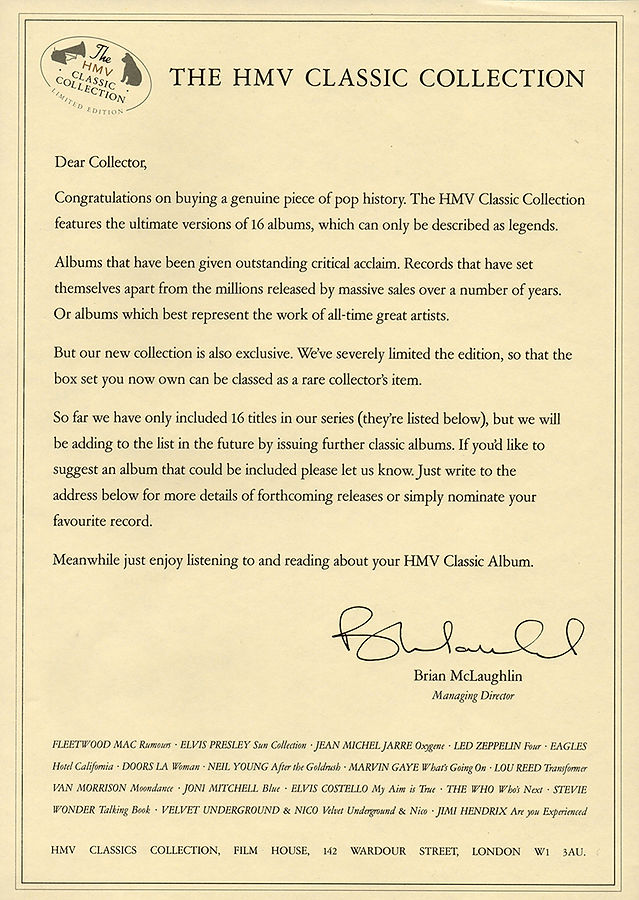 The
HMV
CLASSIC
COLLECTION
LIMITED EDITION
THE HMV CLASSIC COLLECTION
Dear Collector,
Congratulations on buying a genuine piece of pop history. The HMV Classic Collection
features the ultimate versions of 16 albums, which can only be described as legends.
Albums that have been given outstanding critical acclaim. Records that have set
themselves apart from the millions released by massive sales over a number of years.
Or albums which best represent the work of all-time great artists.
But our new collection is also exclusive. We've severely limited the edition, so that the
box set you now own can be classed as a rare collector's item.
So far we have only included 16 titles in our series (they're listed below), but we will
be adding to the list in the future by issuing further classic albums. If you'd like to
suggest an album that could be included please let us know. Just write to the
address below for more details of forthcoming releases or simply nominate your
favourite record.
Meanwhile just enjoy listening to and reading about your HMV Classic Album.
Brian McLaughlin
Managing Director
FLEETWOOD MAC Rumours · ELVIS PRESLEY Sun Collection · JEAN MICHEL JARRE Oxygene · LED ZEPPELIN Four · EAGLES
Hotel California · DOORS LA Woman · NEIL YOUNG After the Goldrush · MARVIN GAYE What's Going On · LOU REED Transformer
VAN MORRISON Moondance · JONI MITCHELL Blue · ELVIS COSTELLO My Aim is True · THE WHO Who's Next · STEVIE
WONDER Talking Book · VELVET UNDERGROUND & NICO Velvet Underground & Nico · JIMI HENDRIX Are you Experienced
HMV CLASSICS COLLECTION, FILM HOUSE, 142 WARDOUR STREET, LONDON W1 3AU.